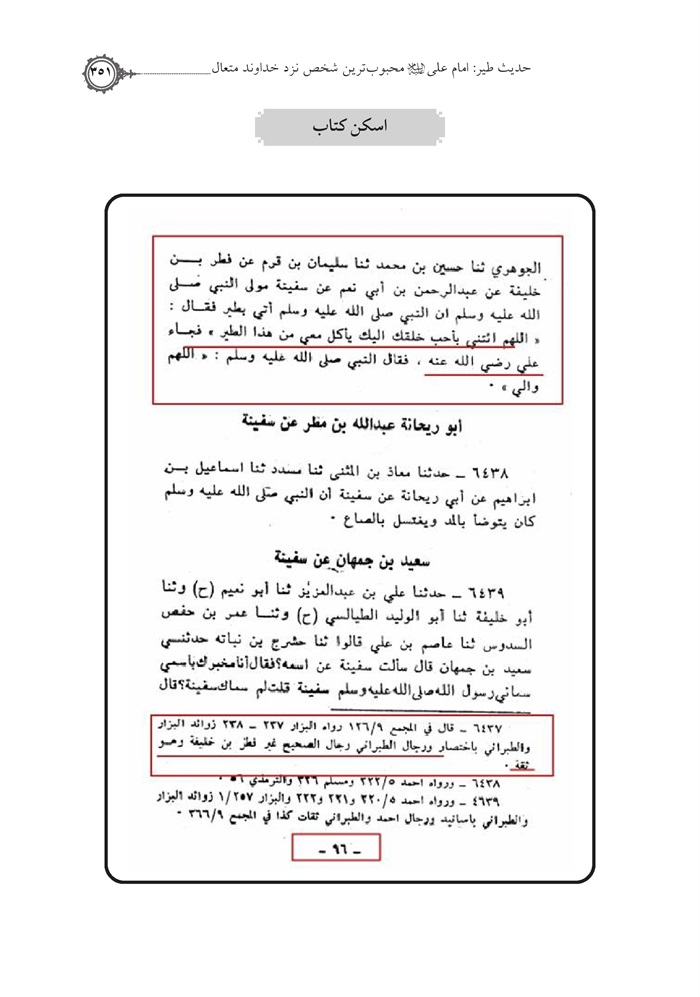 حدیث طیر: امام علی علیه السلام محبوب‌ترین شخص نزد خداوند متعال
۳۵۱
اسکن کتاب
الجوهري ثنا حسين بن محمد ثنا سليمان بن قرم عن فطر بن
خليفة عن عبدالرحمن بن أبي نعم عن سفينة مولى النبي صلى
الله عليه وسلم ان النبي صلى الله عليه وسلم أتي بطير فقال :
« اللهم ائتني بأحب خلقك اليك يأكل معي من هذا الطير » فجاء
علي رضي الله عنه ، فقال النبي صلى الله عليه وسلم : « اللهم
والي » ٠
أبو ريحانة عبدالله بن مطر عن سفينة
٦٤٣٨ – حدثنا معاذ بن المثنى ثنا مسدد ثنا اسماعيل بن
ابراهيم عن أبي ريحانة عن سفينة أن النبي صلى الله عليه وسلم
كان يتوضأ بالمد ويغتسل بالصاع ٠
سعيد بن جمهان عن سفينة
٦٤٣٩ – حدثنا علي بن عبدالعزيز ثنا أبو نعيم (ح) وثنا
أبو خليفة ثنا أبو الوليد الطيالسي (ح) وثنا عمر بن حفص
السدوس ثنا عاصم بن علي قالوا ثنا حشرج بن نباته حدثنسي
سعيد بن جمهان قال سألت سفينة عن اسمه؟فقال أنا مخبرك باسمي
سماني رسول الله صلى الله عليه وسلم سفينة قلت لم سماك سفينة؟قال
٦٤٣٧ – قال في المجمع ١٢٦/٩ رواه البزار ٢٣٧ – ٢٣٨ زوائد البزار
والطبراني باختصار ورجال الطبراني رجال الصحيح غير فطر بن خليفة وهو
ثقة ٠
٦٤٣٨ – ورواه احمد ٢٢٢/٥ ومسلم ٣٢٦ والترمذي ٥٦ ٠
٤٦٣٩ – ورواه احمد ٢٢٠/٥ و٢٢١ و٢٢٢ والبزار ١/٢٥٧ زوائد البزار
والطبراني باسانيد ورجال احمد والطبراني ثقات كذا في المجمع ٣٦٦/٩ ٠
– ٩٦ –